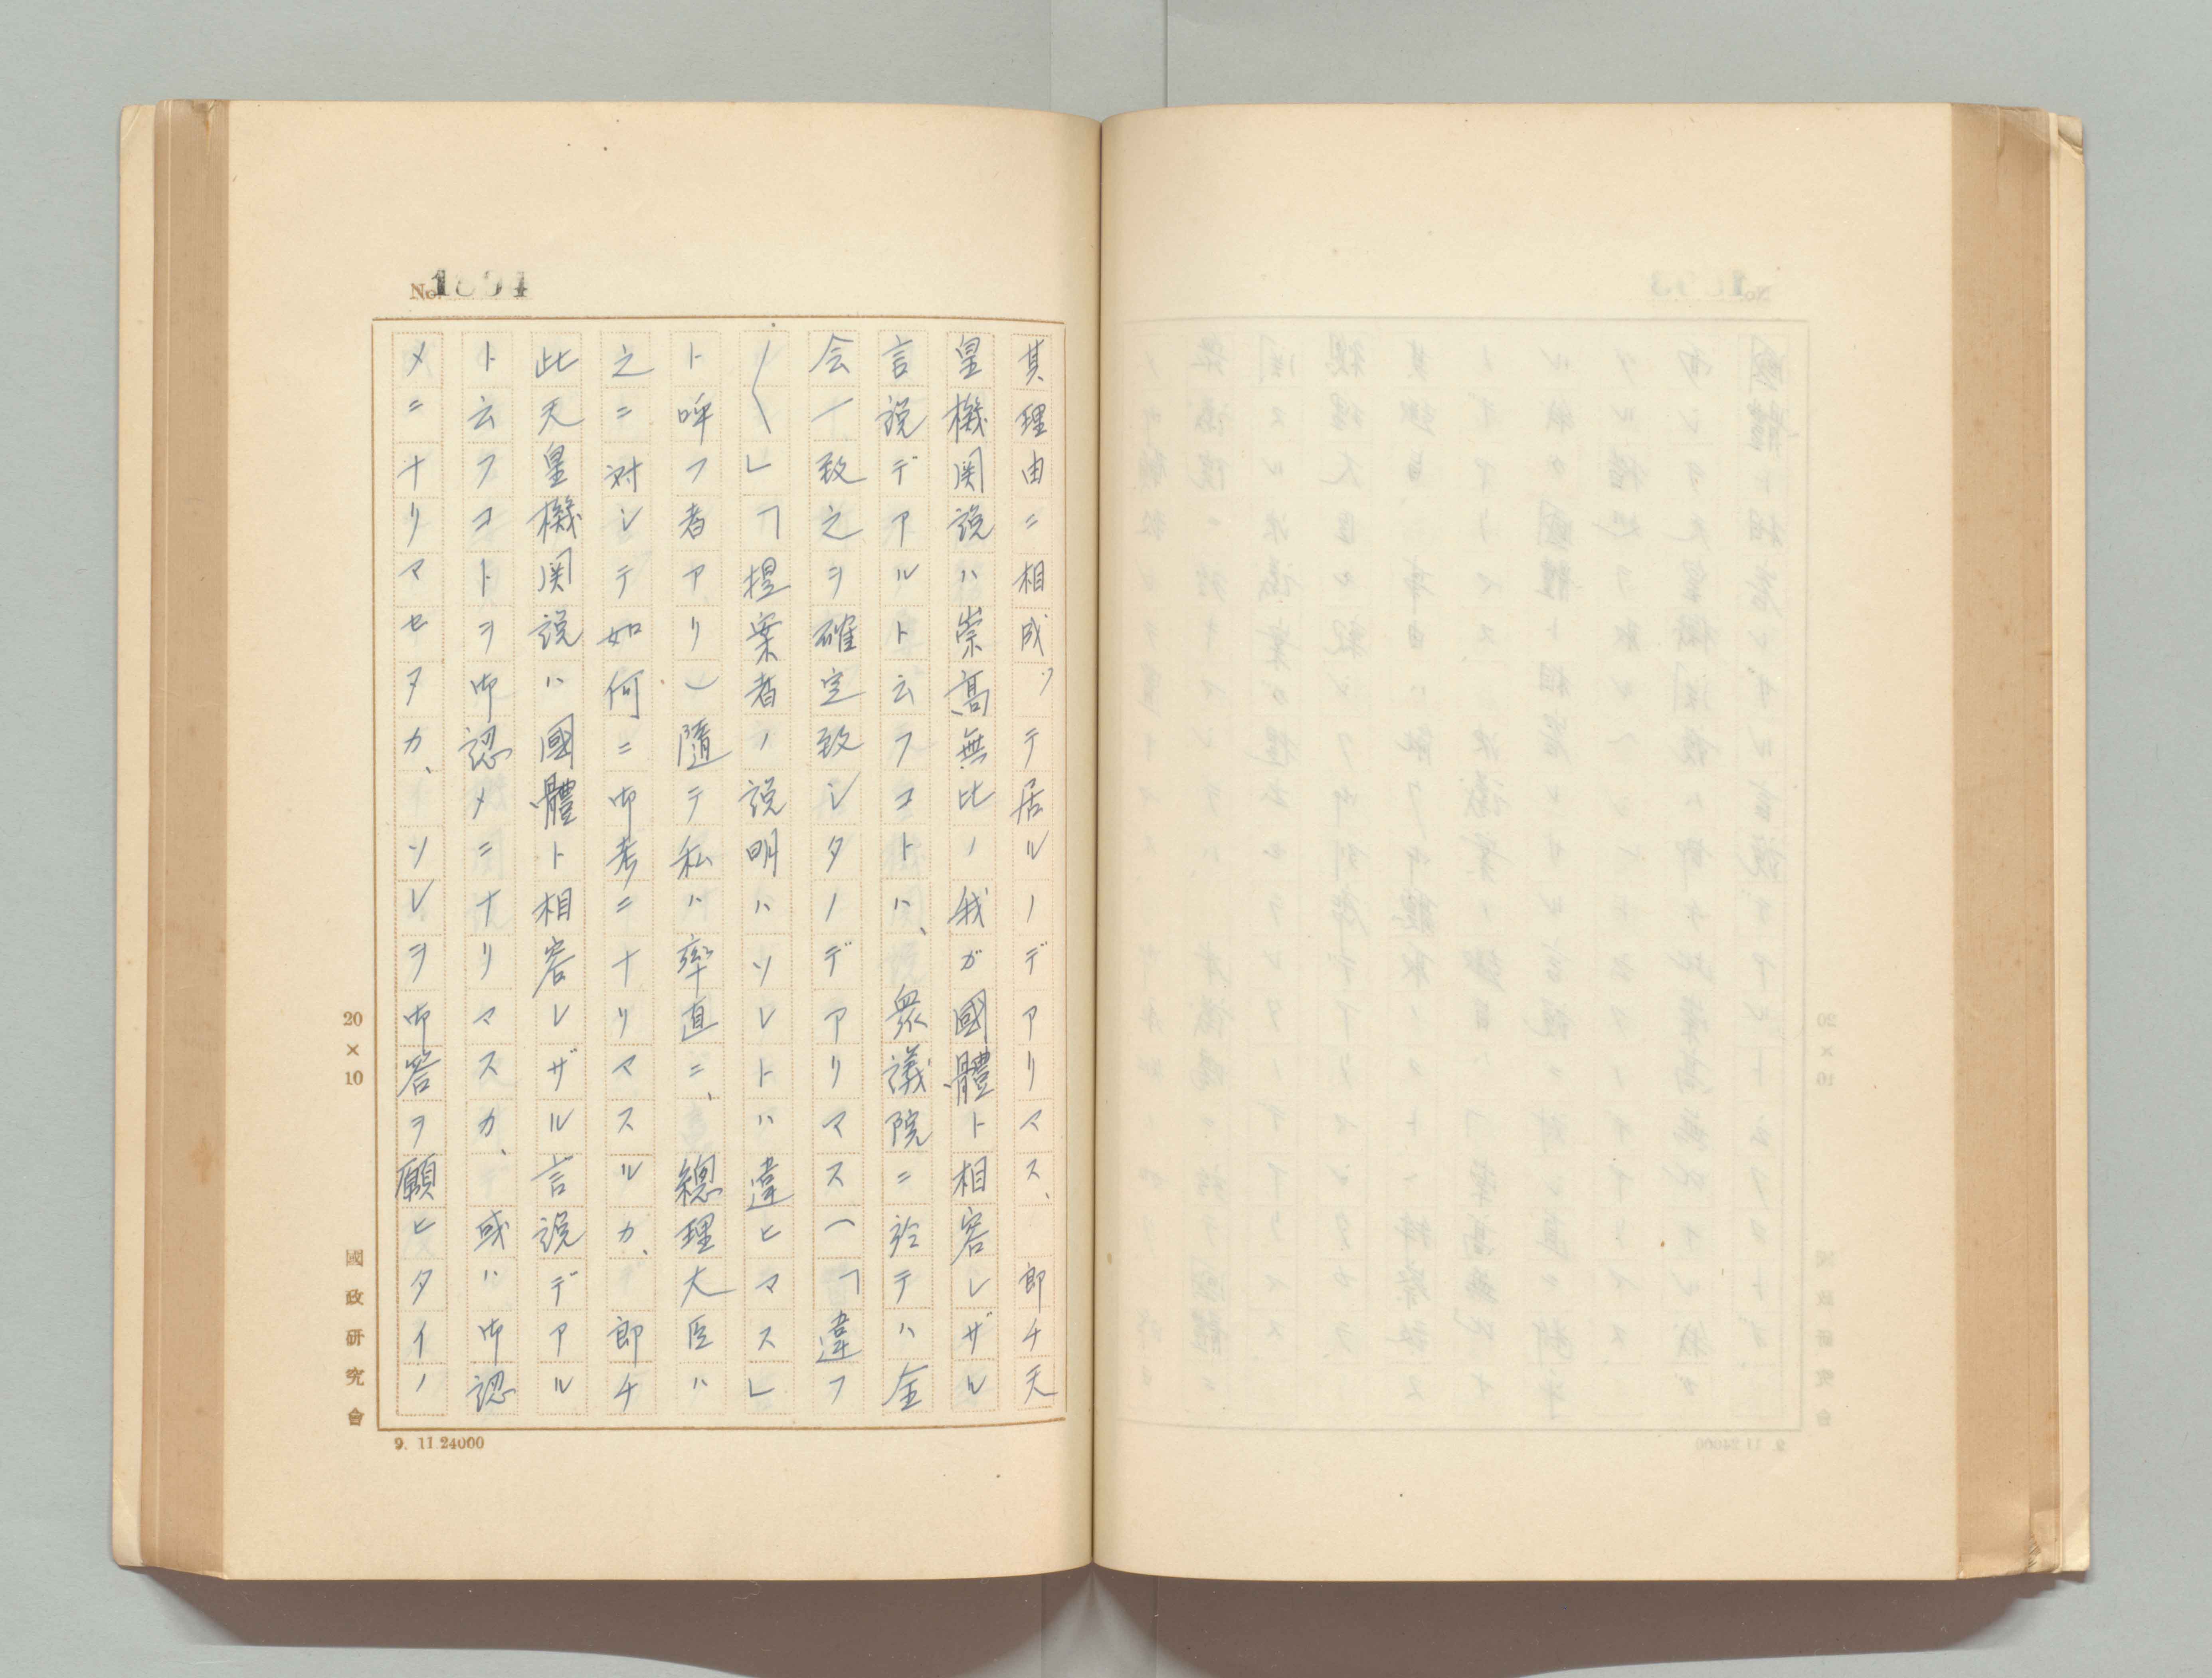 No. 1894
其理由ニ相成ツテ居ルノデアリマス、即チ天
皇機関説ハ崇高無比ノ我ガ國體ト相容レザル
言説デアルト云フコトハ、衆議院ニ於テハ全
会一致之ヲ確定致シタノデアリマス(「違フ
〱」「提案者ノ説明ハソレトハ違ヒマス」
ト呼フ者アリ)隨テ私ハ率直ニ、總理大臣ハ
之ニ対シテ如何ニ御考ニナリマスルカ、即チ
此天皇機関説ハ國體ト相容レザル言説デアル
ト云フコトヲ御認メニナリマスカ、或ハ御認
メニナリマセヌカ、ソレヲ御答ヲ願ヒタイノ
20×10
國政研究會
9. 11.24000